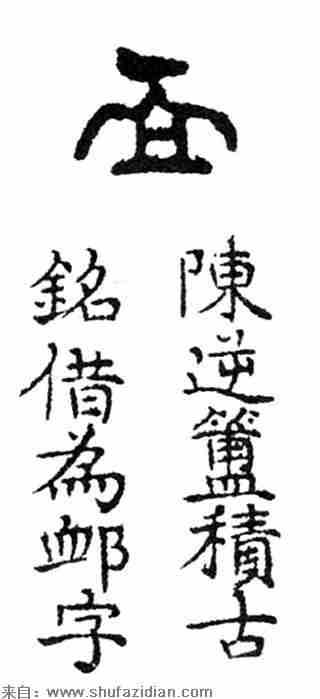 陳逆簠積古
銘借為䘏字
来自：www.shufazidian.com